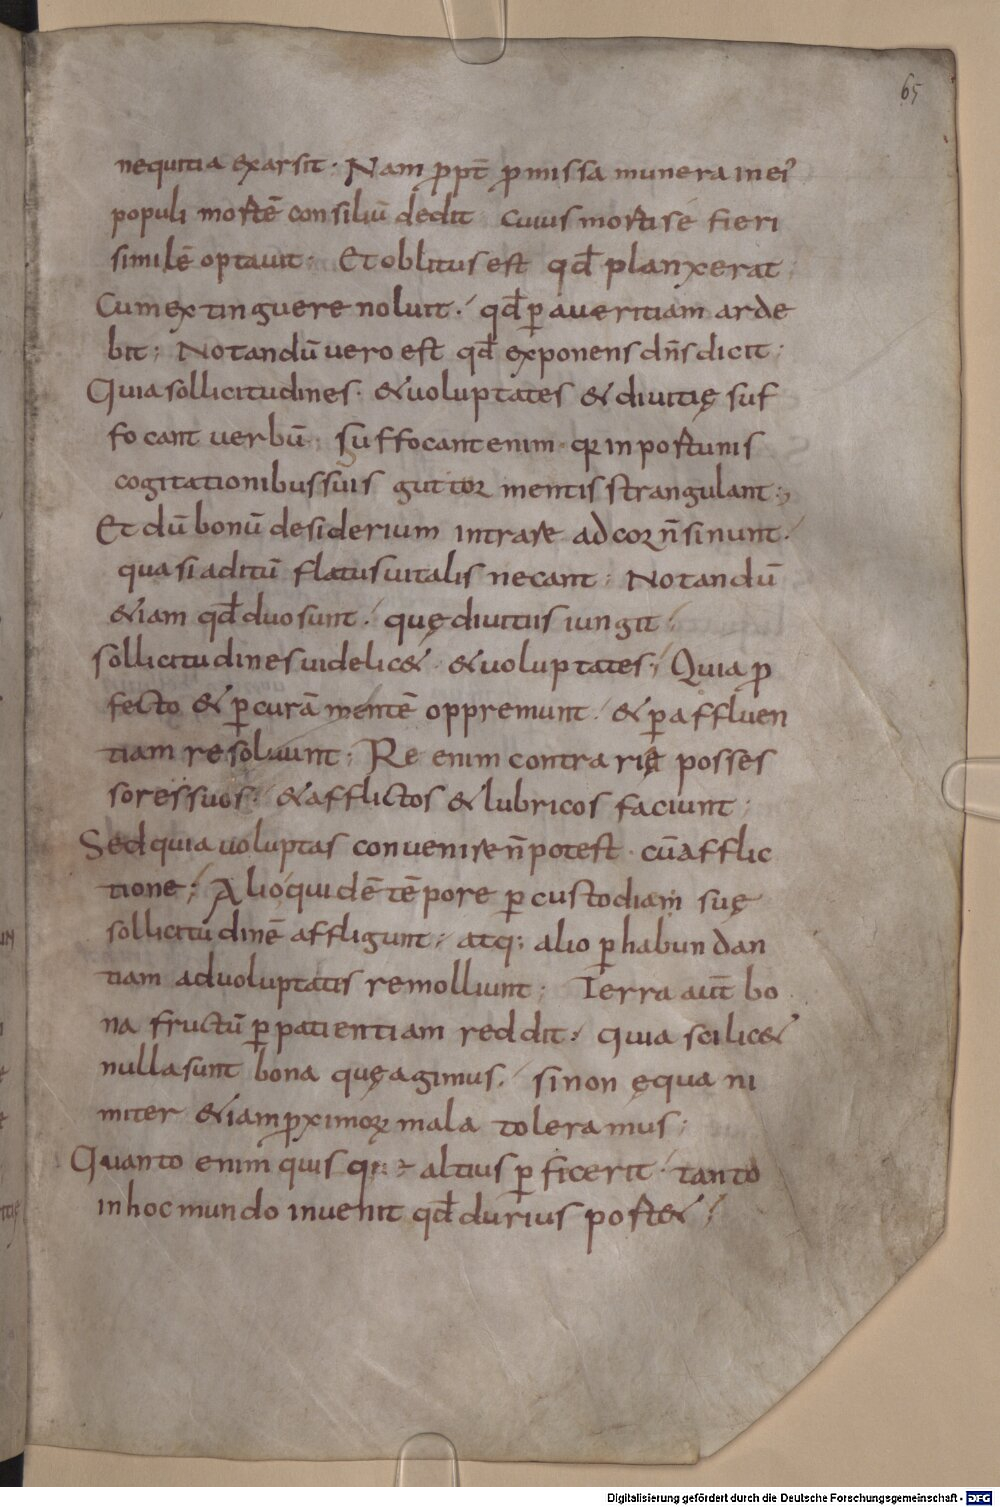 65
nequitia exarsit · Nam ꝓpt̄ ꝓmissa munera in ei'
populi mortē consiliū dedit cuius morti se fieri
similē optauit ; Et oblitus est qđ planxerat ;
Cum extinguere noluit ·/ qđ ꝑ aueritiam arde
bit ; Notandū uero est qđ exponens dn̄s dicit ;
Quia sollicitudines · & uoluptates & diuitię suf
focant uerbū ; suffocant enim · qꝛ inportunis
cogitationibus suis guttur mentis strangulant ;
Et dū bonū desiderium intrare ad cor n̄ sinunt ·/
quasi aditū flatus uitalis necant ; Notandū
&iam qđ duo sunt ·/ quę diuitiis iungit ·/
sollicitudines uidelic& · & uoluptates ;/ Quia ꝓ
fecto & ꝑ curā mentē oppremunt ·/ & ꝑ affluen
tiam resoluunt ; Re enim contrarię posses
sores suos ·/ & afflictos & lubricos faciunt ;
Sed quia uoluptas conuenire n̄ potest · cū afflic
tione ;/ Alio quidē tēpore ꝑ custodiam suę
sollicitudinē affligunt ;/ atq; alio ꝑ habundan
tiam ad uoluptatis remolliunt ; Terra aut̄ bo
na fructū ꝑ patientiam reddit ;/ Quia scilic&
nulla sunt bona quę agimus ·/ si non ęqua ni
miter &iam ꝓximoꝝ mala toleramus ;
Quanto enim quis que altius ꝑficerit ·/ tanto
in hoc mundo inuenit qđ durius port& ;/
Digitalisierung gefördert durch die Deutsche Forschungsgemeinschaft - DFG